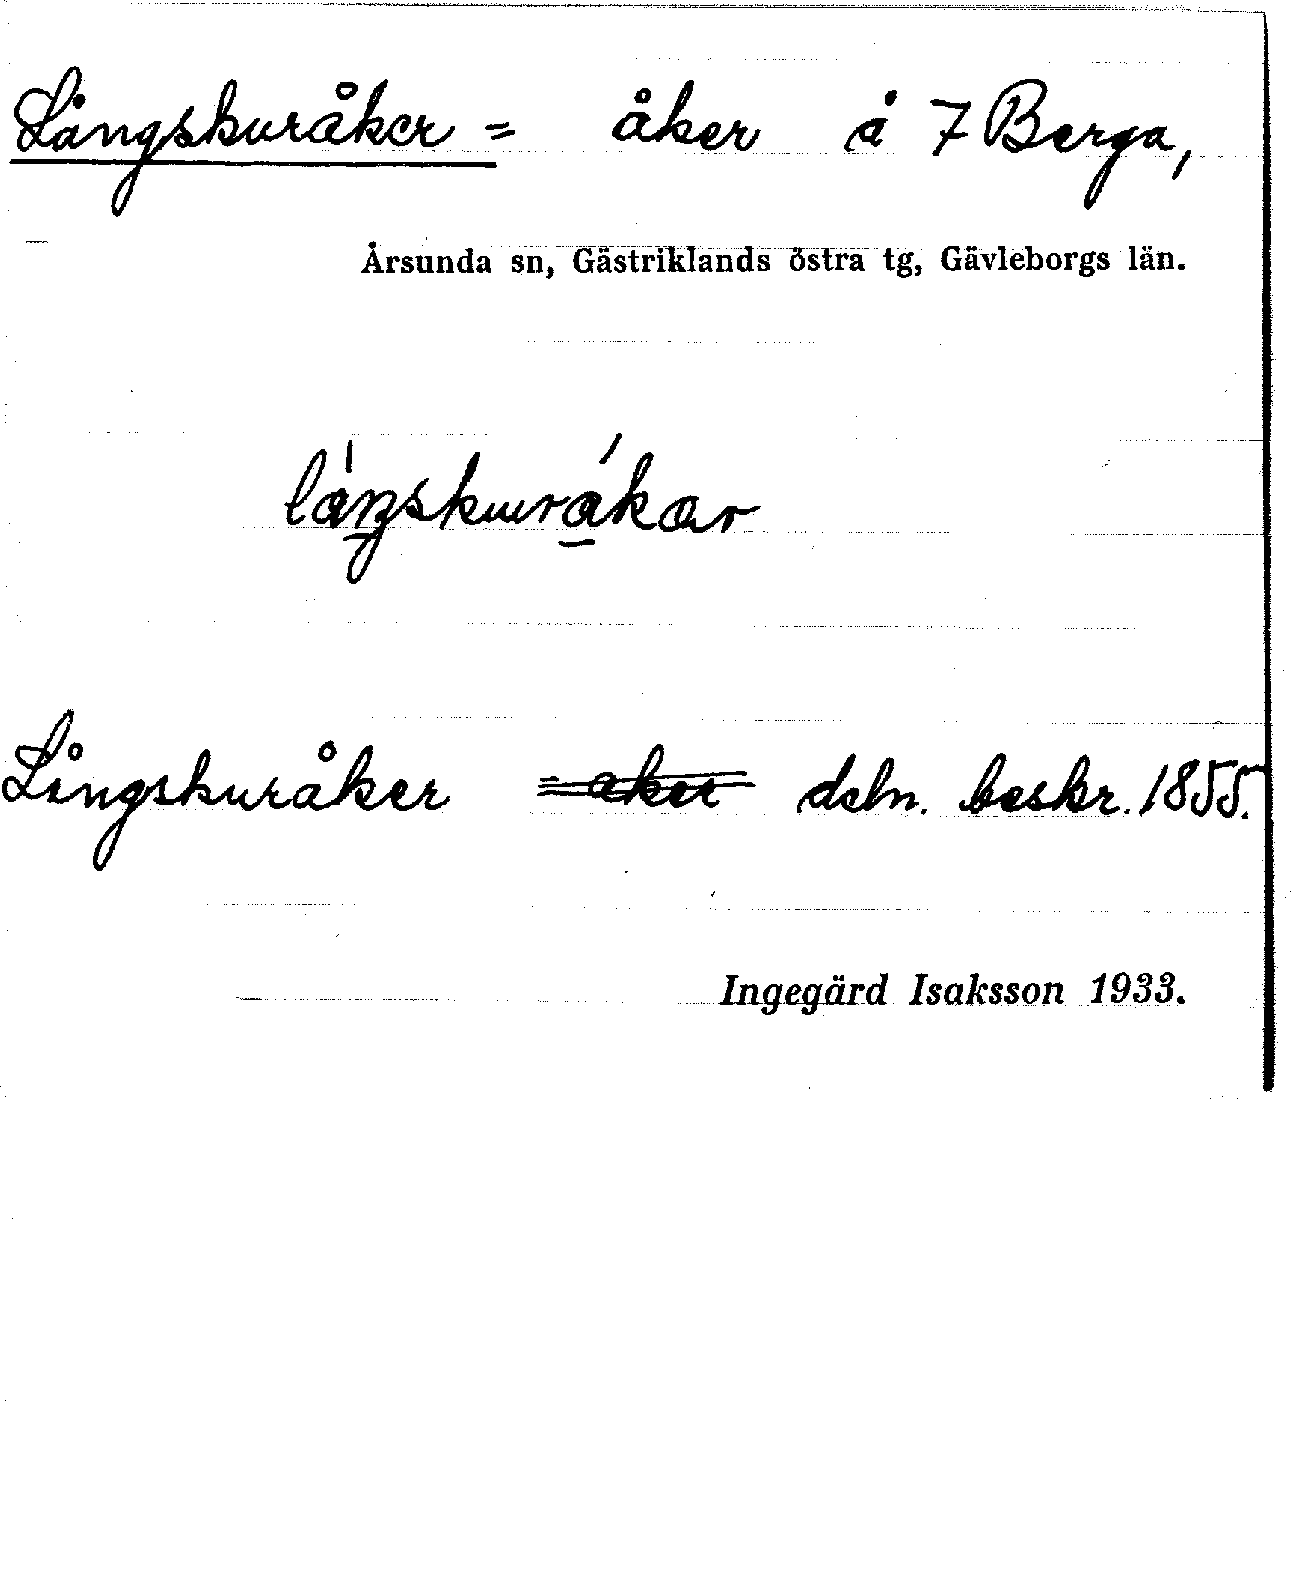 Långskuråker = åker å 7 Berga,
Årsunda sn, Gästriklands östra tg, Gävleborgs län.
Långskuråker = åker deln. beskr. 1855.
Ingegärd Isaksson 1933.